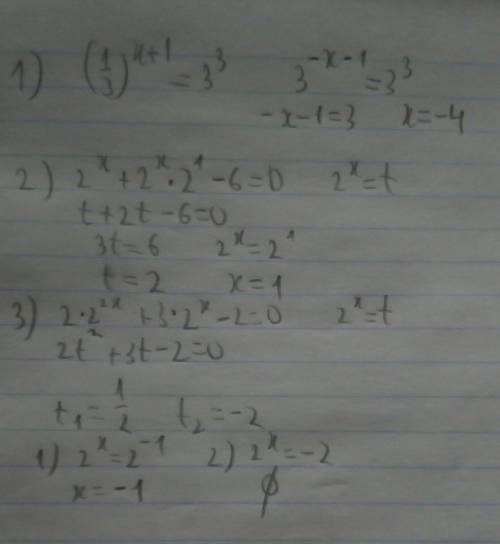 1) (1/3)^(x+1) = 3^3    3^(-x-1) = 3^3
-x-1=3    x=-4
2) 2^x + 2^x · 2^1 - 6 = 0    2^x = t
t+2t-6=0
3t=6    2^x = 2^1
t=2    x=1
3) 2·2^(2x) + 3·2^x - 2 = 0    2^x = t
2t^2 + 3t - 2 = 0
t₁ = 1/2    t₂ = -2
1) 2^x = 2^(-1)    2) 2^x = -2
x = -1    ϕ